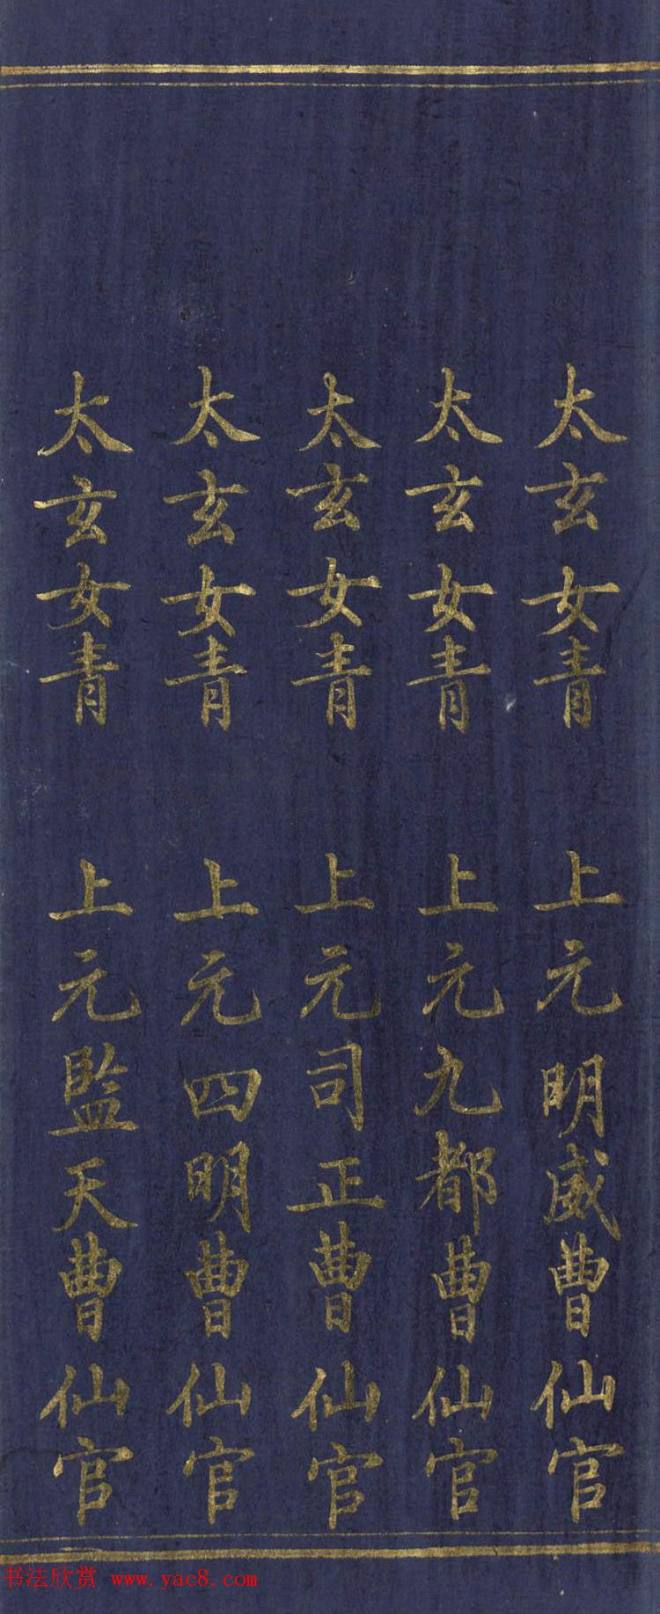 太玄女青 上元明威曹仙官
太玄女青 上元九都曹仙官
太玄女青 上元司正曹仙官
太玄女青 上元四明曹仙官
太玄女青 上元監天曹仙官
书法欣赏 www.yac8.com